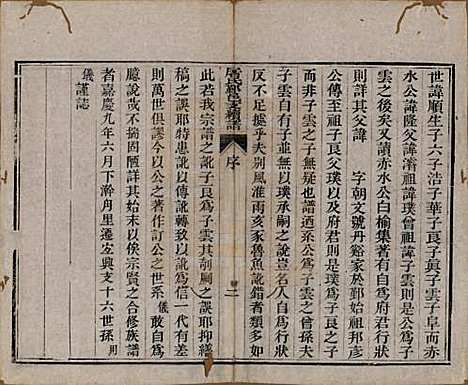 世諱順生子六子浩子華子良子與子雲子阜而亦
水公諱隆父諱灂祖諱璞曾祖諱子良則是公為子
雲之後矣又讀赤水公白榆集著有為府君行狀
則詳其父諱 字朝文號丹谿家於始祖邦彥
公傳至祖子良父璞以及府君則是璞實為子良子
而非子雲子無疑也譜迺系公為子雲之曾孫夫
子雲自子並無以璞承嗣之說豈名人自為行狀
反不足據乎夫別風淮雨亥豕魯魚訛錯者類多如
屠氏 續譜 序 二
此若我宗譜之訛子良為子雲其剞劂之誤耶抑繕
稿之誤耶特患訛以傳訛轉致以訛為信一代有差
則萬世俱因今以公之著作訂公之世系儀敢自為
臆說哉不揣固陋詳其始末以俟宗賢之合修族譜
者嘉慶九年六月下澣月里遷友興支十六世孫用
儀謹誌